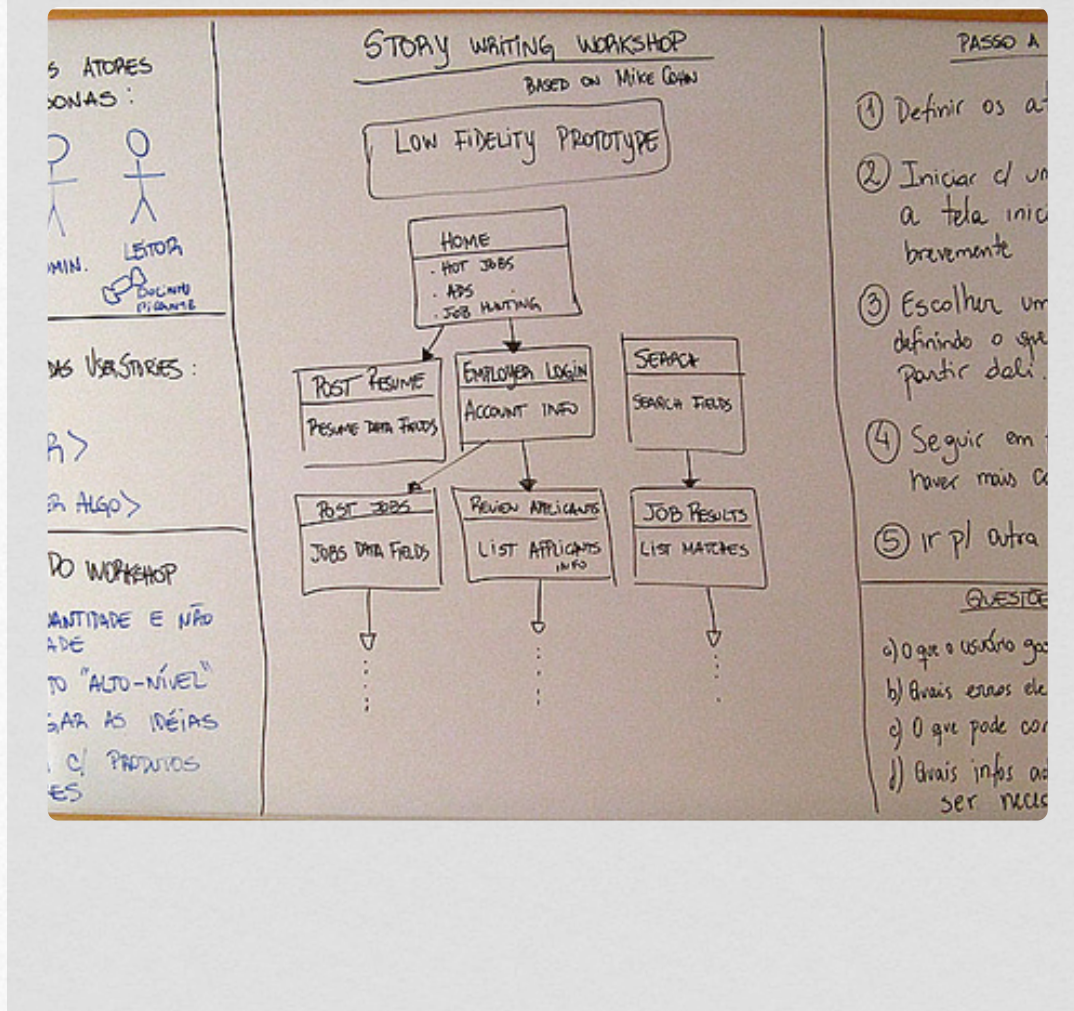 S ATORES
SONAS:
MIN.
LEITOR
DAS USER STORIES:
R>
ER ALGO>
DO WORKSHOP
ANTIDADE E NÃO
ADE
TO "ALTO-NÍVEL"
GAR AS IDÉIAS
C/ PRODUTOS
ES
STORY WRITING WORKSHOP
BASED ON MIKE COHN
LOW FIDELITY PROTOTYPE
HOME
. HOT JOBS
. ADS
. JOB HUNTING
POST RESUME
RESUME DATA FIELDS
EMPLOYER LOGIN
ACCOUNT INFO
SEARCH
SEARCH FIELDS
POST JOBS
JOBS DATA FIELDS
REVIEW APPLICANTS
LIST APPLICANTS
INFO
JOB RESULTS
LIST MATCHES
PASSO A
1 Definir os at
2 Iniciar c/ um
a tela inic
brevemente
3 Escolher um
definindo o que
partir dali.
4 Seguir em
haver mais co
5 Ir p/ outra
QUESTÕE
a) O que o usuário gos
b) Quais erros ele
c) O que pode con
d) Quais infos ad
ser neces